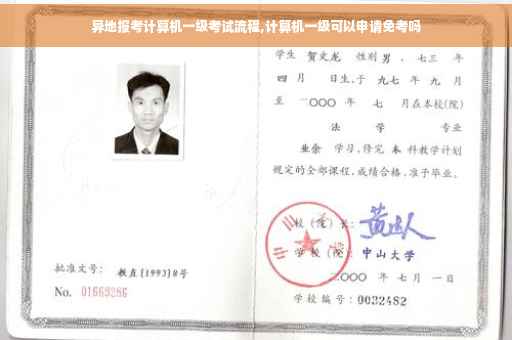 异地报考计算机一级考试流程,计算机一级可以申请免考吗
学生 贺文龙 性别 男 、七三 年
四 月 日生,于 九七 年 九 月
至 二〇〇〇 年 七 月在本校(院)
法 学 专业
业余 学习,修完 本 科教学计划
规定的全部课程,成绩合格,准予毕业。
校 (院) 长:
学 校 (院): 中山大学
二〇〇〇 年 七 月 一 日
学校编号: 0032482
批准文号: 教直[1993]8号
No. 01669286